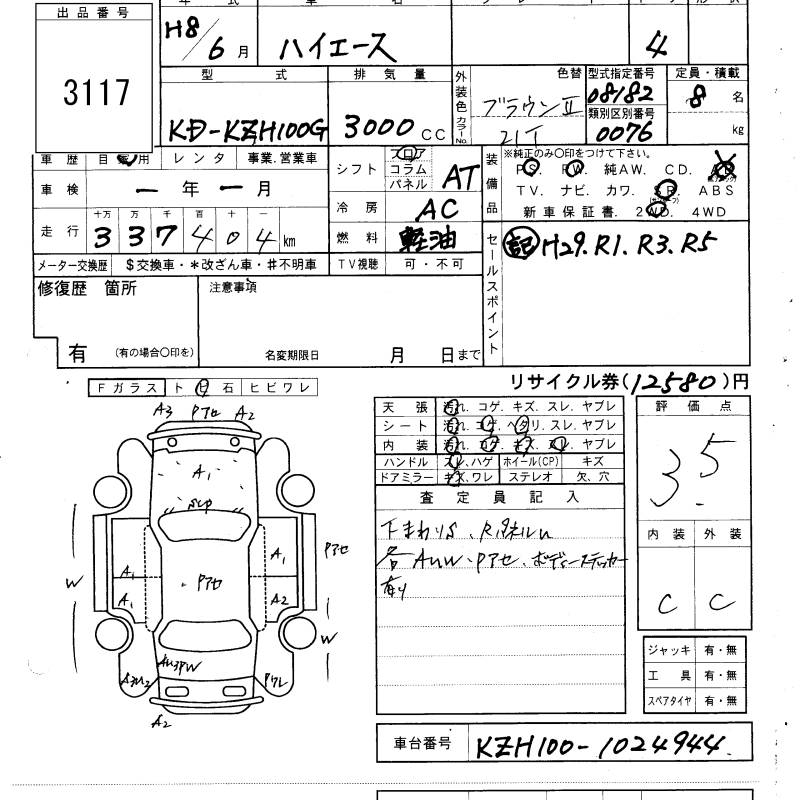 出品番号
3117
H8/6月
ハイエース
4
型 式
排気量
外装色
カラーNo.
色替
型式指定番号
定員・積載
KD-KZH100G
3000 CC
ブラウンII
21T
08182
類別区別番号
0076
8 名
kg
車歴 自 用 レンタ 事業.営業車
シフト フロア コラム パネル AT
装備品
※純正のみ〇印をつけて下さい。
PS. PW. 純AW. CD.
TV. ナビ. カワ. SR. ABS
新車保証書. 2WD. 4WD
車検 ー年ー月
冷房 AC
走行 十万 万 千 百 十 一
337404 km
燃料 軽油
セールスポイント
記 H29.R1.R3.R5
メーター交換歴 $交換車・*改ざん車・#不明車
TV視聴 可・不可
修復歴 箇所
注意事項
有 (有の場合〇印を)
名変期限日 月 日まで
リサイクル券(12580)円
Fガラス トビ石 ヒビワレ
天張 汚れ. コゲ. キズ. スレ. ヤブレ
シート 汚れ. コゲ. ヘタリ. スレ. ヤブレ
内装 汚れ. コゲ. キズ. スレ. ヤブレ
ハンドル スレ.ハゲ ホイール(CP) キズ
ドアミラー キズ.ワレ ステレオ 欠、穴
査定員記入
下まわりS、Rパネルu
各AUW・Pアセ、ボディーステッカー
有り
評価点
3.5
内装 外装
C C
ジャッキ 有・無
工具 有・無
スペアタイヤ 有・無
A3 Pアセ A2
A1
A1
A1
A1
Pアセ
A2
Pアセ
W
W
AU3PW
A3U2
A2
車台番号 KZH100-1024944